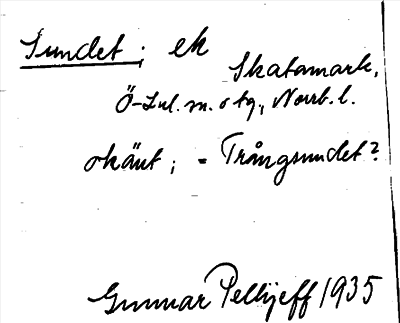 Sundet; ek
Skatamark,
Ö-Lul. sn. o tg., Norrb. l.
okänt; = Trångsundet?
Gunnar Pellijeff 1935